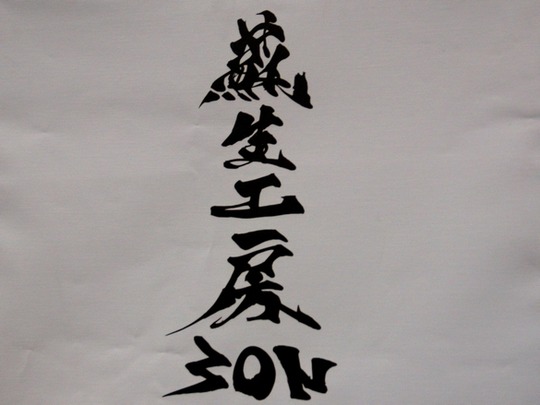 蘇生工房
SON